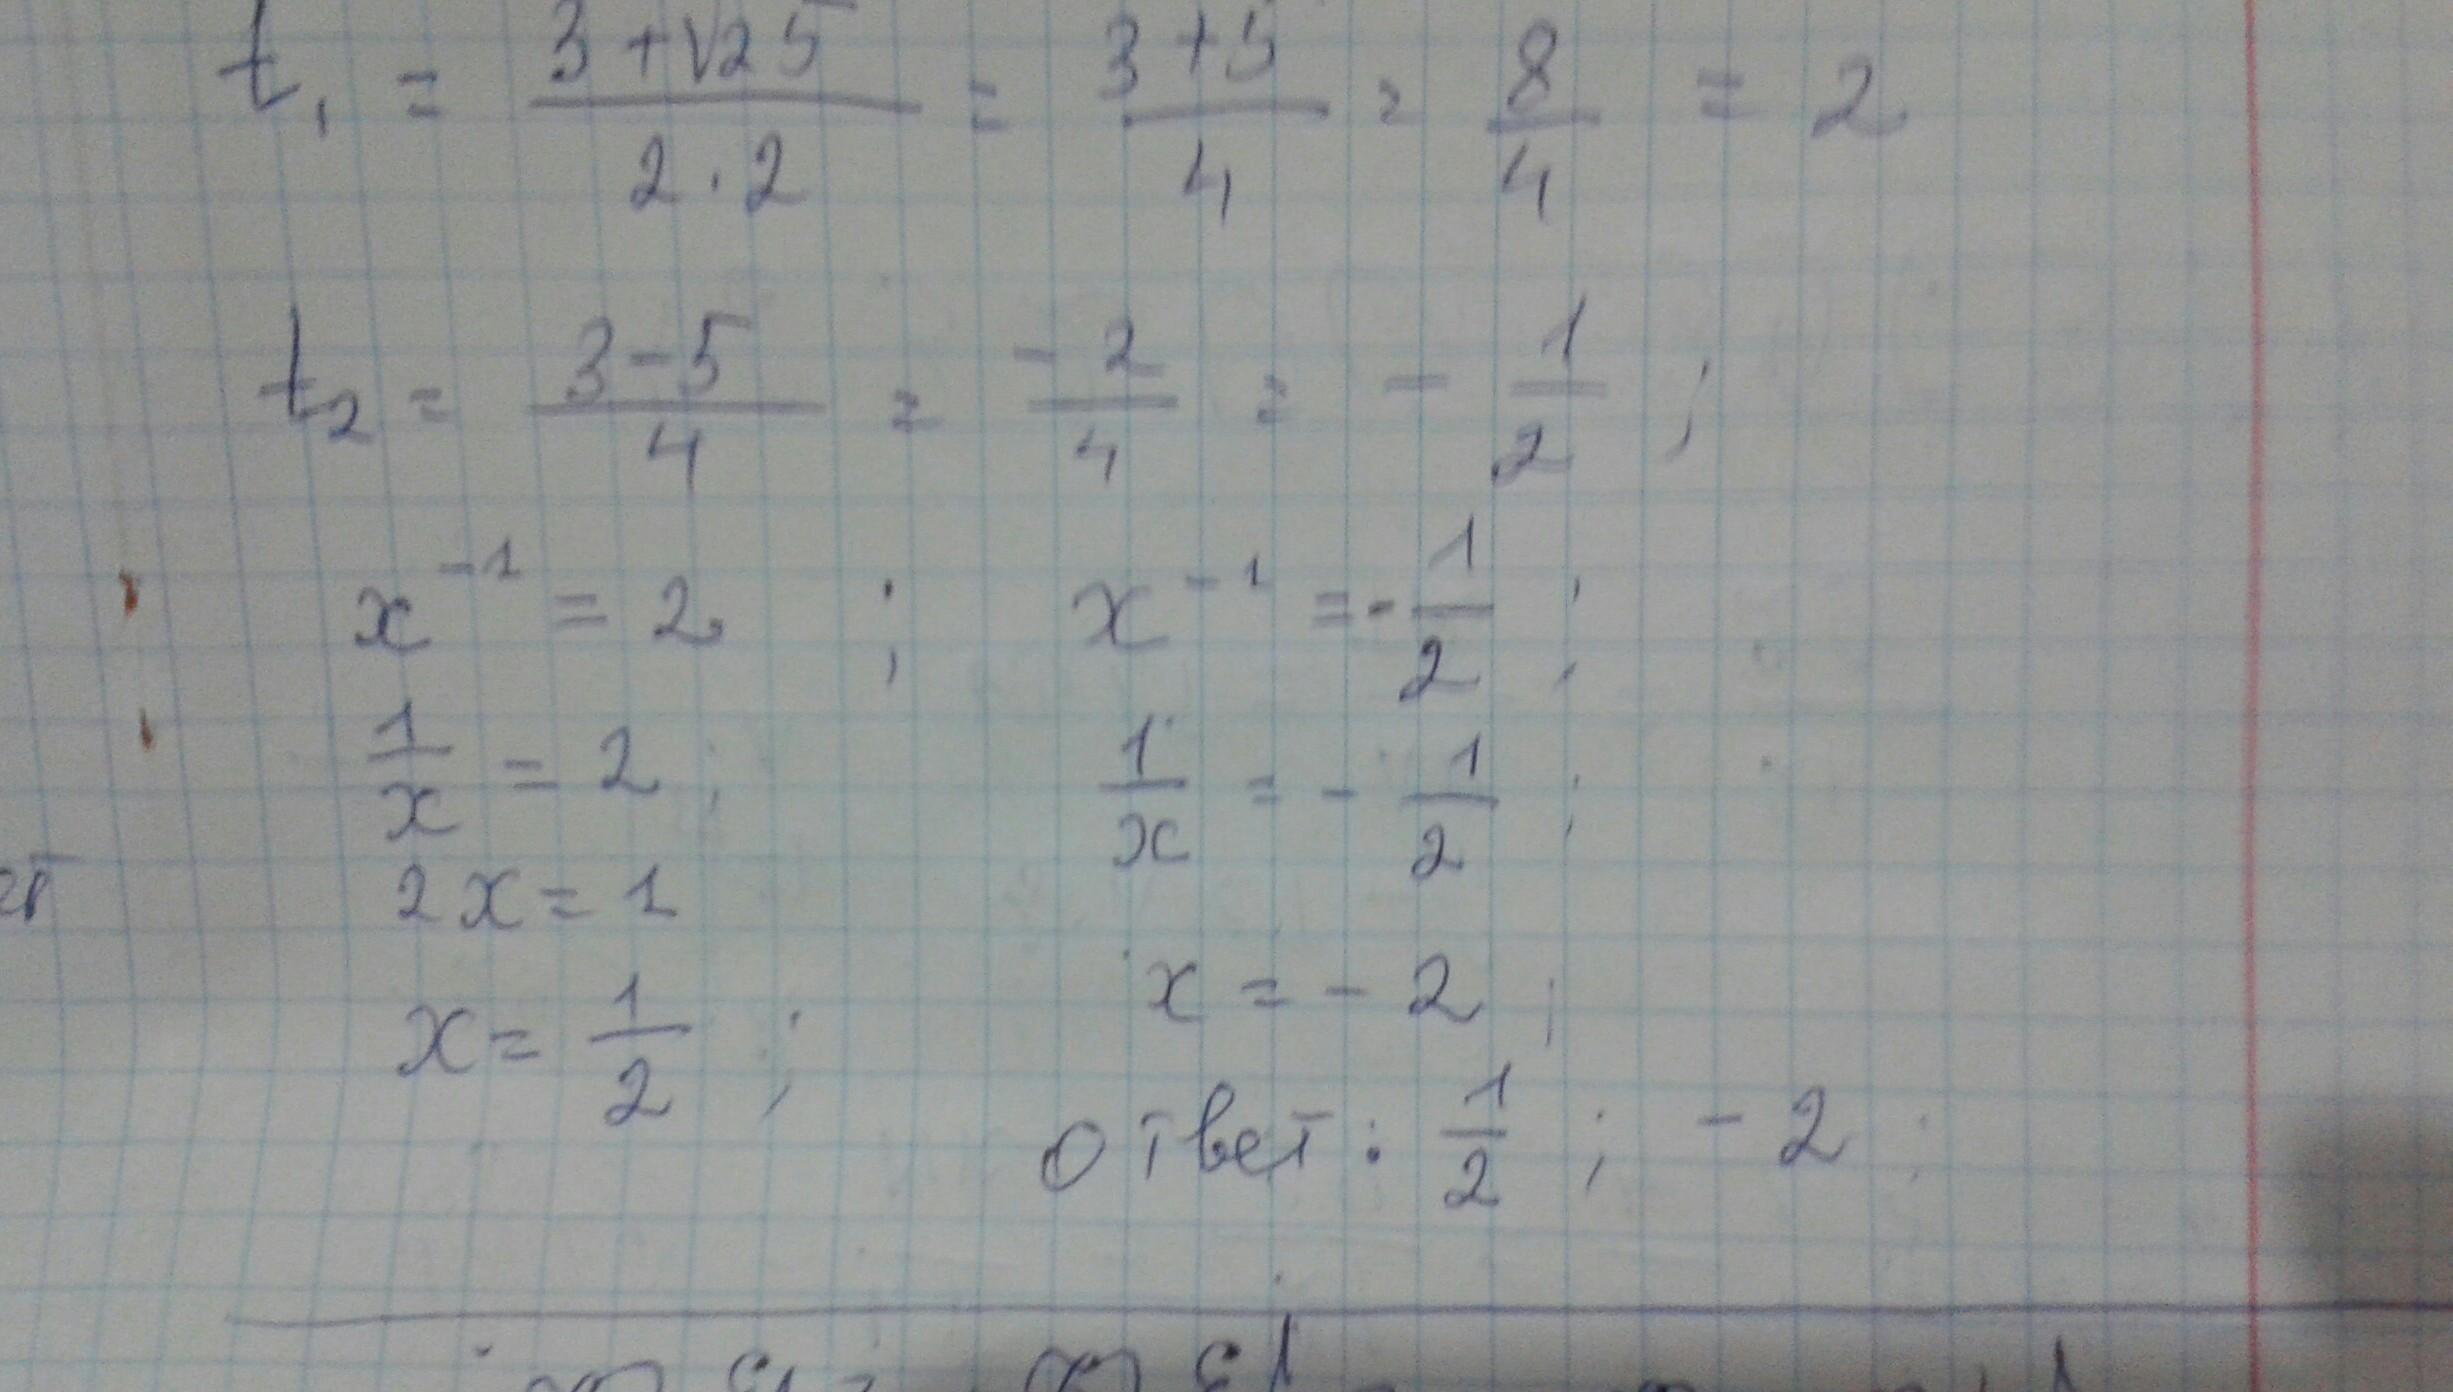 t₁ = (3+√25)/(2·2) = (3+5)/4 = 8/4 = 2
t₂ = (3-5)/4 = (-2)/4 = -1/2 ;
x⁻¹ = 2 ; x⁻¹ = -1/2 ;
1/x = 2 ; 1/x = -1/2 ;
2x = 1
x = -2 ;
x = 1/2 ;
ответ: 1/2 ; -2 ;